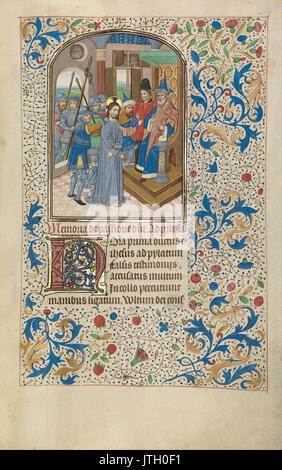 Memoria de passione dni. Ad primā
Hora prima ductus est
ihesus ad pylatum
Falsis testimonijs,
Accusatus multum
In collo percutiunt
manibus ligatum, Vultum dei cons
a alamy stock photo
JTH0F1